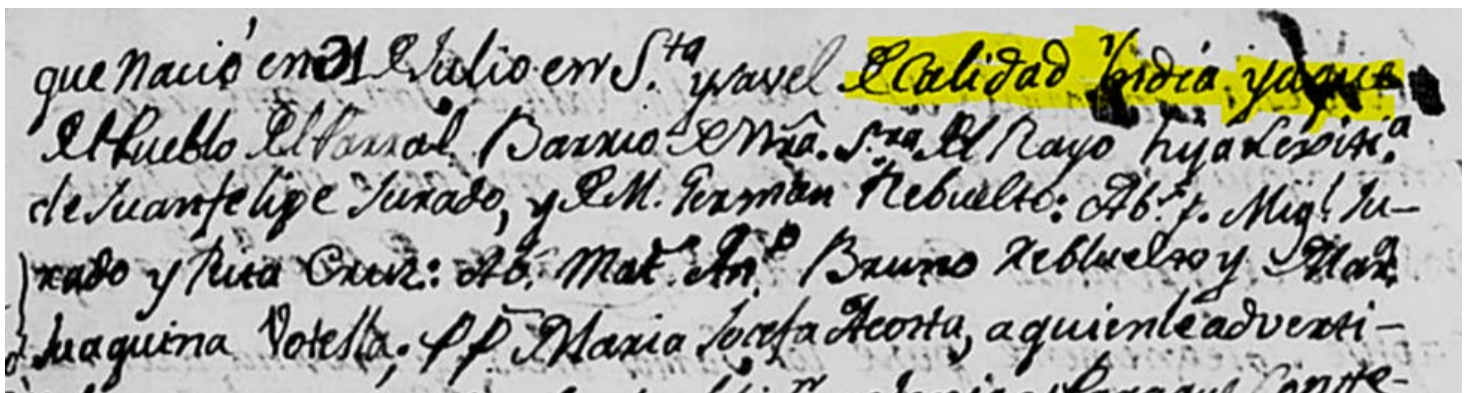 que nació en 31 de Julio en S.ta ysavel de Calidad India, yaqui
del Pueblo del Parral, Barrio de Nra. S.ra del Rayo hija Lexiti.a
de Juan felipe Jurado, y de M. German Rebuelto: Ab.s p. Mig.l Ju-
rado y Rita Cruz: Ab. Mat. An.o Bruno Rebuelto y Mar.a
Juaquina Votello. PP. Maria Josefa Acosta, a quien le adverti-